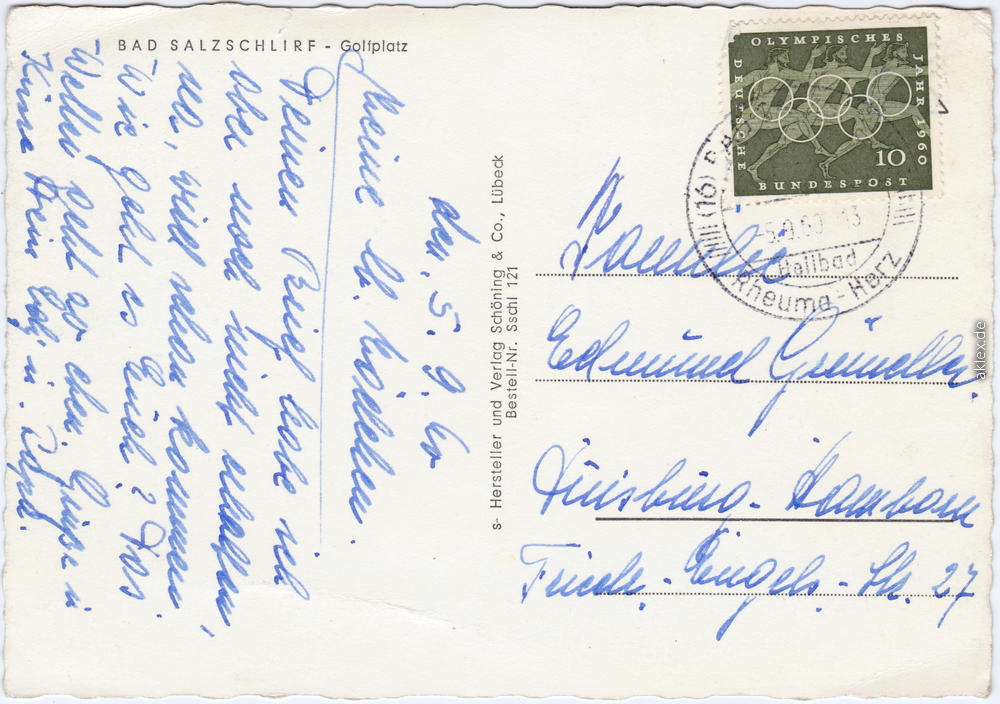 BAD SALZSCHLIRF - Golfplatz
den, 5. 9. 60
Meine lb.
Deinen Brief habe ich
aber noch nicht erhalten,
wird schon kommen.
Wie geht es Euch? Das
Wetter geht so eben. Grüße u
Küsse Deine
s- Hersteller und Verlag Schöning & Co., Lübeck
Bestell-Nr. Sschl 121
OLYMPISCHES
JAHR 1960
DEUTSCHE
BUNDESPOST
10
(16)
-5.9.60-13
Heilbad
Rheuma-Herz
Familie
Edmund
Duisburg-Hamborn
Friedr.-Engels-Str. 27
aklex.de